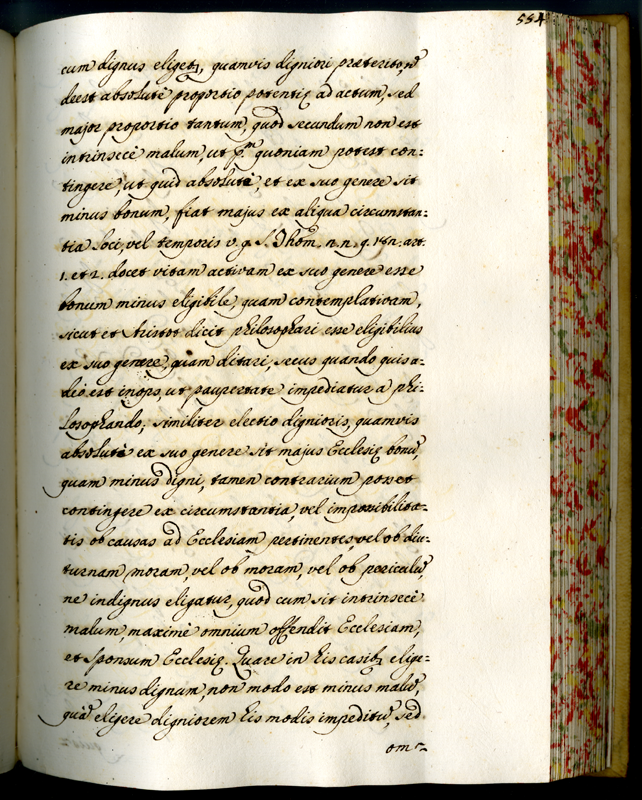 554
cum dignus eligetr, quamvis digniori præterito, nō
deest absolutè proportio potentiȩ ad actum, sed
major proportio tantum, quod secundum non est
intrinsecè malum, ut pm. quoniam potest con:
tingere, ut quid absolutè, et ex suo genere sit
minus bonum, fiat majus ex aliqua circumstan:
tia loci, vel temporis v. g. S. Thom. n. n. q. 182. art.
1. et 2. docet vitam activam ex suo genere esse
bonum minus eligibile, quam contemplativam,
sicut et Aristot dicit philosophari esse eligibilius
ex suo genere, quam ditari, secus quando quis a-
deò est inops, ut paupertate impediatur a phi-
losophando; similiter electio dignioris, quamvis
absolutè ex suo genere sit majus Ecclesiȩ bonū,
quam minus digni, tamen contrarium posset
contingere ex circumstantia, vel impossibilita-
tis ob causas ad Ecclesiam pertinentes, vel ob diu-
turnam moram, vel ob moram, vel ob periculū,
ne indignus eligatur, quod cum sit intrinsecè
malum, maximè omnium offendit Ecclesiam,
et Sponsum Ecclesiȩ. Quare in his casib; elige-
re minus dignum, non modo est minus malū,
quā eligere digniorem his modis impeditū, sed
om-